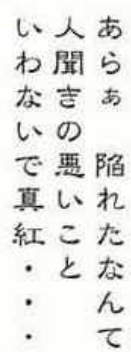 あらぁ　陥れたなんて
人聞きの悪いこと
いわないで真紅・・・